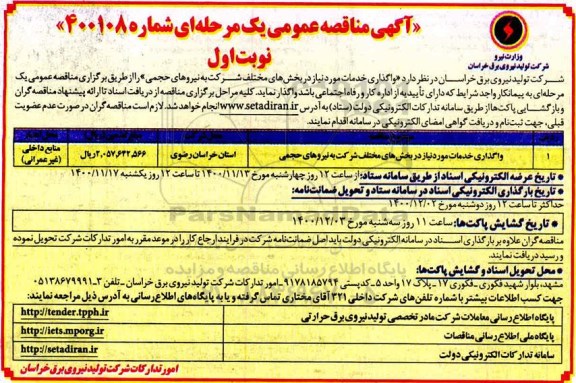 «آگهی مناقصه عمومی یک مرحله‌ای شماره ۴۰۰۱۰۸»
نوبت اول
وزارت نیرو
شرکت تولید نیروی برق خراسان
شرکت تولید نیروی برق خراسان در نظر دارد «واگذاری خدمات مورد نیاز در بخش‌های مختلف شرکت به نیروهای حجمی» را از طریق برگزاری مناقصه عمومی یک
مرحله‌ای به پیمانکار واجد شرایط که دارای تأییدیه از اداره کار و رفاه اجتماعی باشد واگذار نماید. کلیه مراحل برگزاری مناقصه از دریافت اسناد تا ارائه پیشنهاد مناقصه‌گران
و بازگشایی پاکت‌ها از طریق سامانه تدارکات الکترونیکی دولت (ستاد) به آدرس www.setadiran.ir انجام خواهد شد. لازم است مناقصه‌گران در صورت عدم عضویت
قبلی، جهت ثبت‌نام و دریافت گواهی امضای الکترونیکی در سامانه اقدام نمایند.
۱ واگذاری خدمات مورد نیاز در بخش‌های مختلف شرکت به نیروهای حجمی استان خراسان رضوی ۲,۰۵۷,۶۴۲,۵۶۶ ریال منابع داخلی (غیرعمرانی)
* تاریخ عرضه الکترونیکی اسناد از طریق سامانه ستاد: از ساعت ۱۲ روز چهارشنبه مورخ ۱۴۰۰/۱۱/۱۳ تا ساعت ۱۲ روز یکشنبه ۱۴۰۰/۱۱/۱۷
* تاریخ بارگذاری الکترونیکی اسناد در سامانه ستاد و تحویل ضمانت‌نامه:
حداکثر تا ساعت ۱۲ روز دوشنبه مورخ ۱۴۰۰/۱۲/۰۲
* تاریخ گشایش پاکت‌ها: ساعت ۱۱ روز سه‌شنبه مورخ ۱۴۰۰/۱۲/۰۳
مناقصه‌گران علاوه بر بارگذاری اسناد در سامانه الکترونیکی دولت باید اصل ضمانت‌نامه شرکت در فرایند ارجاع کار را در موعد مقرر به امور تدارکات شرکت تحویل نموده
و رسید دریافت نمایند.
* محل تحویل اسناد و گشایش پاکت‌ها:
مشهد، بلوار شهید فکوری - فکوری ۱۷ - پلاک ۱۷ واحد ۵ - کدپستی ۹۱۷۸۱۸۵۷۹۴ - امور تدارکات شرکت تولید نیروی برق خراسان - تلفن ۳-۰۵۱۳۸۶۷۹۹۹۱
جهت کسب اطلاعات بیشتر با شماره تلفن‌های شرکت داخلی ۳۲۱ آقای مختاری تماس گرفته و یا به پایگاه‌های اطلاع‌رسانی به آدرس ذیل مراجعه نمایند:
پایگاه اطلاع رسانی معاملات شرکت مادر تخصصی تولید نیروی برق حرارتی http://tender.tpph.ir
پایگاه ملی اطلاع رسانی مناقصات http://iets.mporg.ir
سامانه تدارکات الکترونیکی دولت http://setadiran.ir
امور تدارکات شرکت تولید نیروی برق خراسان
ParsNamadData
پایگاه اطلاع رسانی مناقصه و مزایده